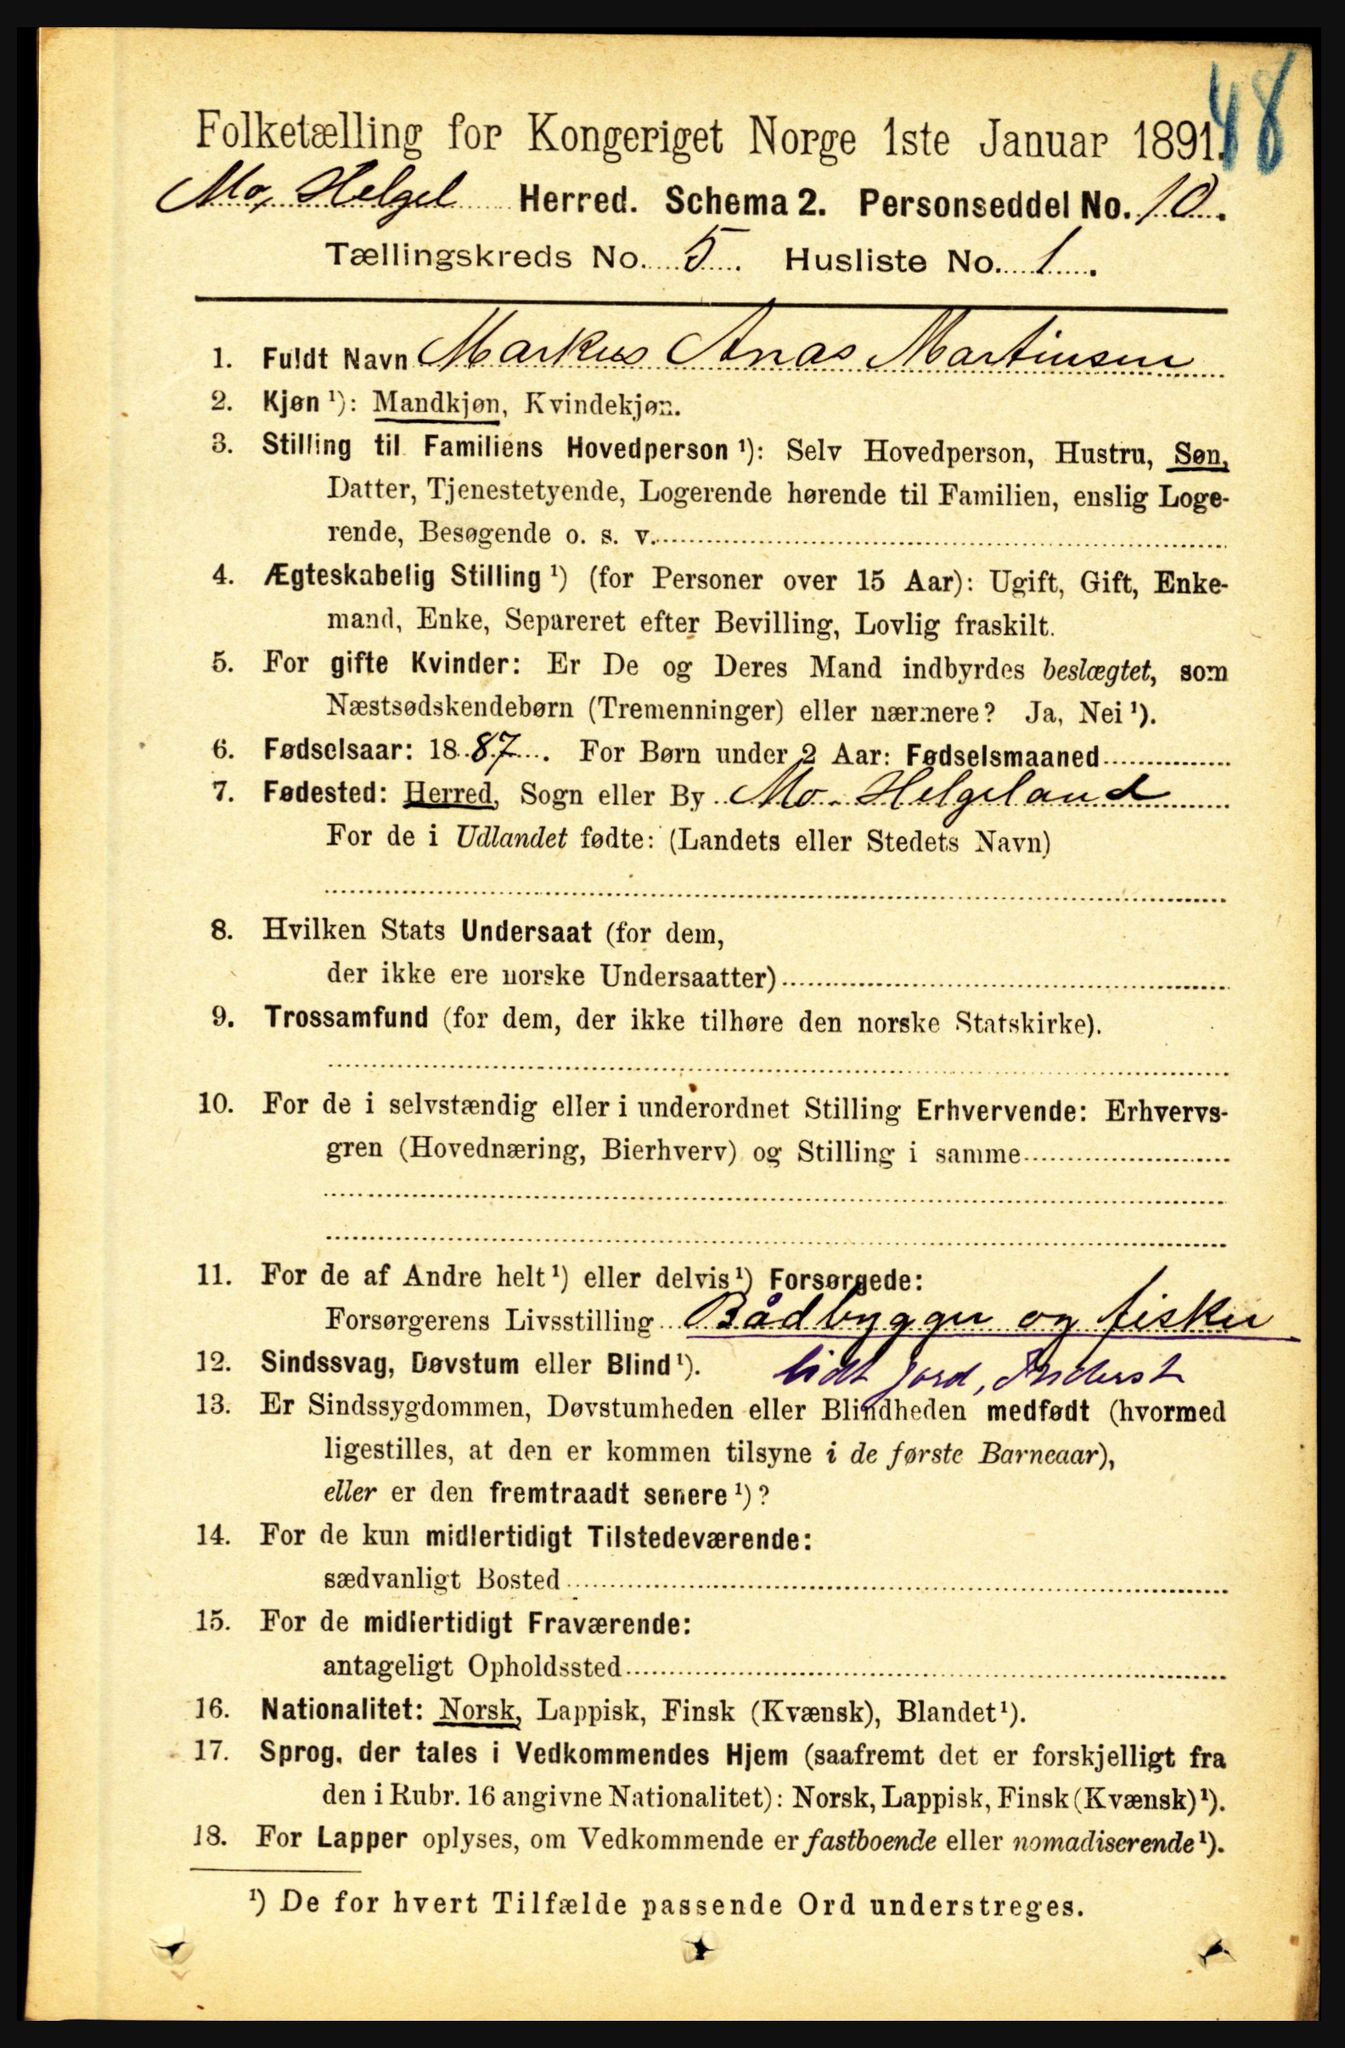 48
Folketælling for Kongeriget Norge 1ste Januar 1891.
Mo, Helgel Herred. Schema 2. Personseddel No. 10.
Tællingskreds No. 5. Husliste No. 1.
1. Fuldt Navn Markus Anas Martinsen
2. Kjøn ¹): Mandkjøn, Kvindekjøn.
3. Stilling til Familiens Hovedperson ¹): Selv Hovedperson, Hustru, Søn,
Datter, Tjenestetyende, Logerende hørende til Familien, enslig Loge-
rende, Besøgende o. s. v.
4. Ægteskabelig Stilling ¹) (for Personer over 15 Aar): Ugift, Gift, Enke-
mand, Enke, Separeret efter Bevilling, Lovlig fraskilt.
5. For gifte Kvinder: Er De og Deres Mand indbyrdes beslægtet, som
Næstsødskendebørn (Tremenninger) eller nærmere? Ja, Nei ¹).
6. Fødselsaar: 1887. For Børn under 2 Aar: Fødselsmaaned
7. Fødested: Herred, Sogn eller By Mo. Helgeland
For de i Udlandet fødte: (Landets eller Stedets Navn)
8. Hvilken Stats Undersaat (for dem,
der ikke ere norske Undersaatter)
9. Trossamfund (for dem, der ikke tilhøre den norske Statskirke).
10. For de i selvstændig eller i underordnet Stilling Erhvervende: Erhvervs-
gren (Hovednæring, Bierhverv) og Stilling i samme
11. For de af Andre helt ¹) eller delvis ¹) Forsørgede:
Forsørgerens Livsstilling Bådbygger og fisker
12. Sindssvag, Døvstum eller Blind ¹). lidt jord, Inderst
13. Er Sindssygdommen, Døvstumheden eller Blindheden medfødt (hvormed
ligestilles, at den er kommen tilsyne i de første Barneaar),
eller er den fremtraadt senere ¹)?
14. For de kun midlertidigt Tilstedeværende:
sædvanligt Bosted
15. For de midlertidigt Fraværende:
antageligt Opholdssted
16. Nationalitet: Norsk, Lappisk, Finsk (Kvænsk), Blandet ¹).
17. Sprog, der tales i Vedkommendes Hjem (saafremt det er forskjelligt fra
den i Rubr. 16 angivne Nationalitet): Norsk, Lappisk, Finsk (Kvænsk) ¹).
18. For Lapper oplyses, om Vedkommende er fastboende eller nomadiserende ¹).
¹) De for hvert Tilfælde passende Ord understreges.